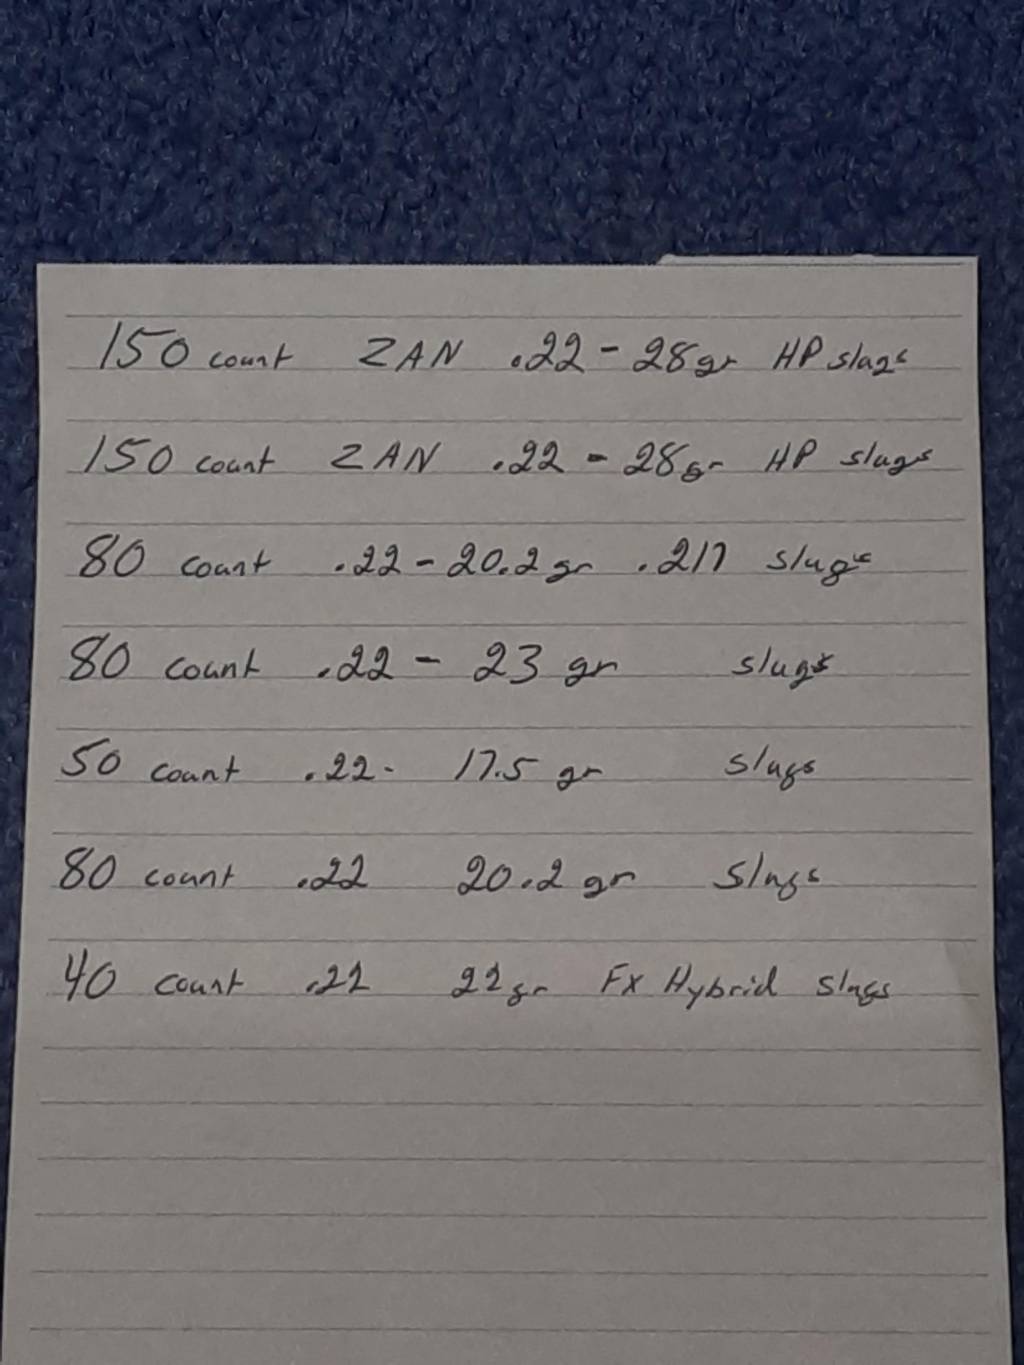 150 count ZAN .22 - 28gr HP slugs
150 count ZAN .22 - 28gr HP slugs
80 count .22 - 20.2 gr .217 slugs
80 count .22 - 23 gr slugs
50 count .22 - 17.5 gr slugs
80 count .22 20.2 gr slugs
40 count .22 22gr FX Hybrid slugs